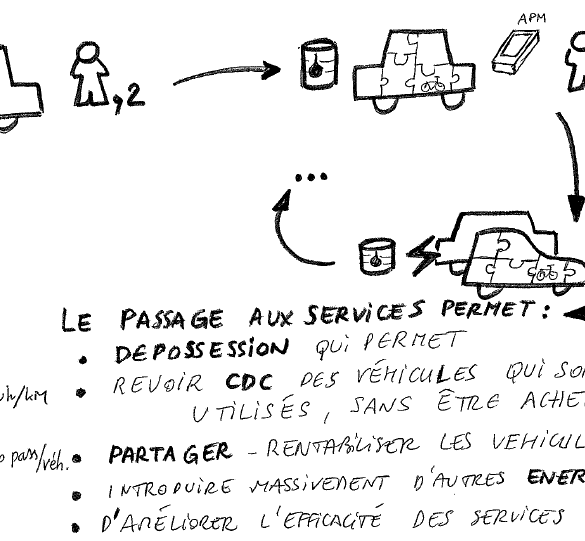 APM
,2
...
LE PASSAGE AUX SERVICES PERMET :
• DEPOSSESSION QUI PERMET
• REVOIR CDC DES VÉHICULES QUI SO
wh/km
UTILISÉS, SANS ÊTRE ACHE
pass/véh.
• PARTAGER - RENTABILISER LES VEHICUL
• INTRODUIRE MASSIVEMENT D'AUTRES ENER
• D'AMÉLIORER L'EFFICACITÉ DES SERVICES